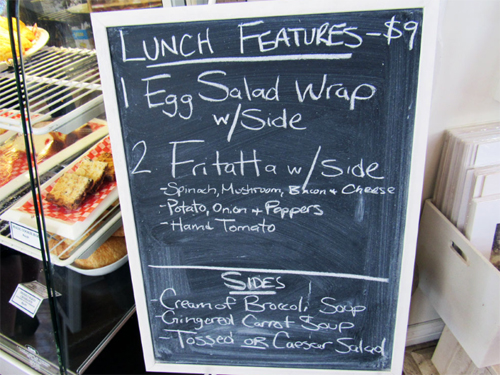 LUNCH FEATURES - $9
1 Egg Salad Wrap
w/Side
2 Fritatta w/Side
- Spinach, Mushroom, Bacon + Cheese
- Potato, Onion + Peppers
- Ham & Tomato
SIDES
- Cream of Broccoli Soup
- Gingered Carrot Soup
- Tossed OR Caesar Salad